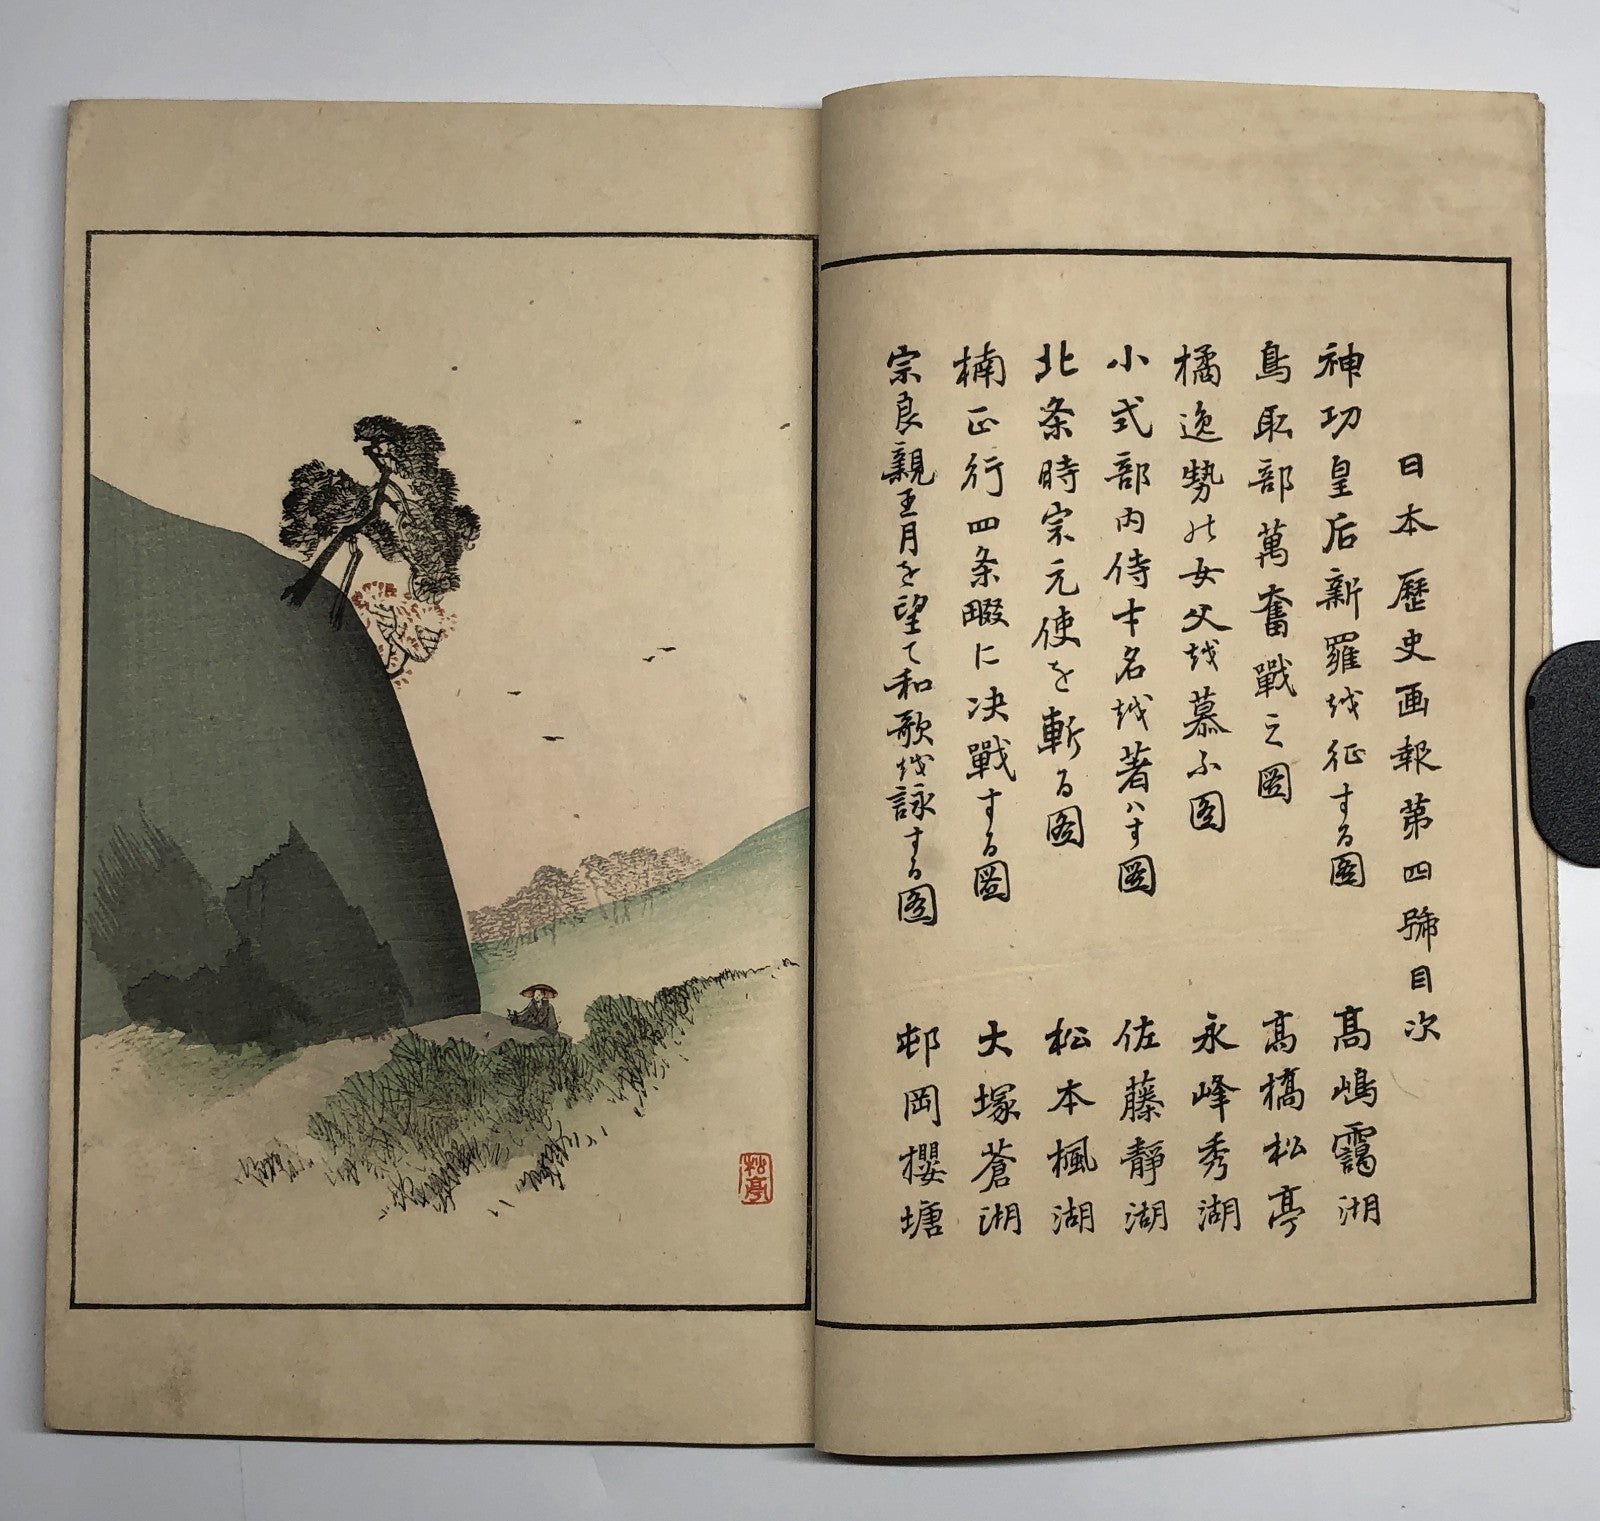 日本歴史画報第四號目次
神功皇后新羅越征する圖 高嶋靄湖
鳥取部萬奮戰之圖 高橋松亭
橘逸勢の女父越慕ふ圖 永峰秀湖
小式部内侍才名越著ハす圖 佐藤靜湖
北条時宗元使を斬る圖 松本楓湖
楠正行四条畷に决戰する圖 大塚蒼湖
宗良親王月を望て和歌越詠する圖 邨岡櫻塘
松亭